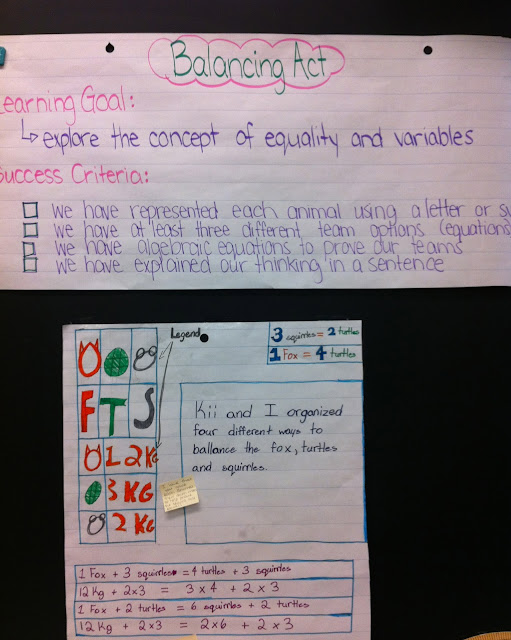 Balancing Act
Learning Goal:
↳ explore the concept of equality and variables
Success Criteria:
□ we have represented each animal using a letter or
□ we have at least three different team options (equations)
□ we have algebraic equations to prove our teams
□ we have explained our thinking in a sentence
Legend
F T S
12KG
3 KG
2 KG
3 squirrles = 2 turtles
1 Fox = 4 turtles
Kii and I organized
four different ways to
ballance the fox, turtles
and squirrles.
1 Fox + 3 squirrles = 4 turtles + 3 squirrles
12 Kg + 2×3 = 3×4 + 2×3
1 Fox + 2 turtles = 6 squirrles + 2 turtles
12 Kg + 2×3 = 2×6 + 2×3